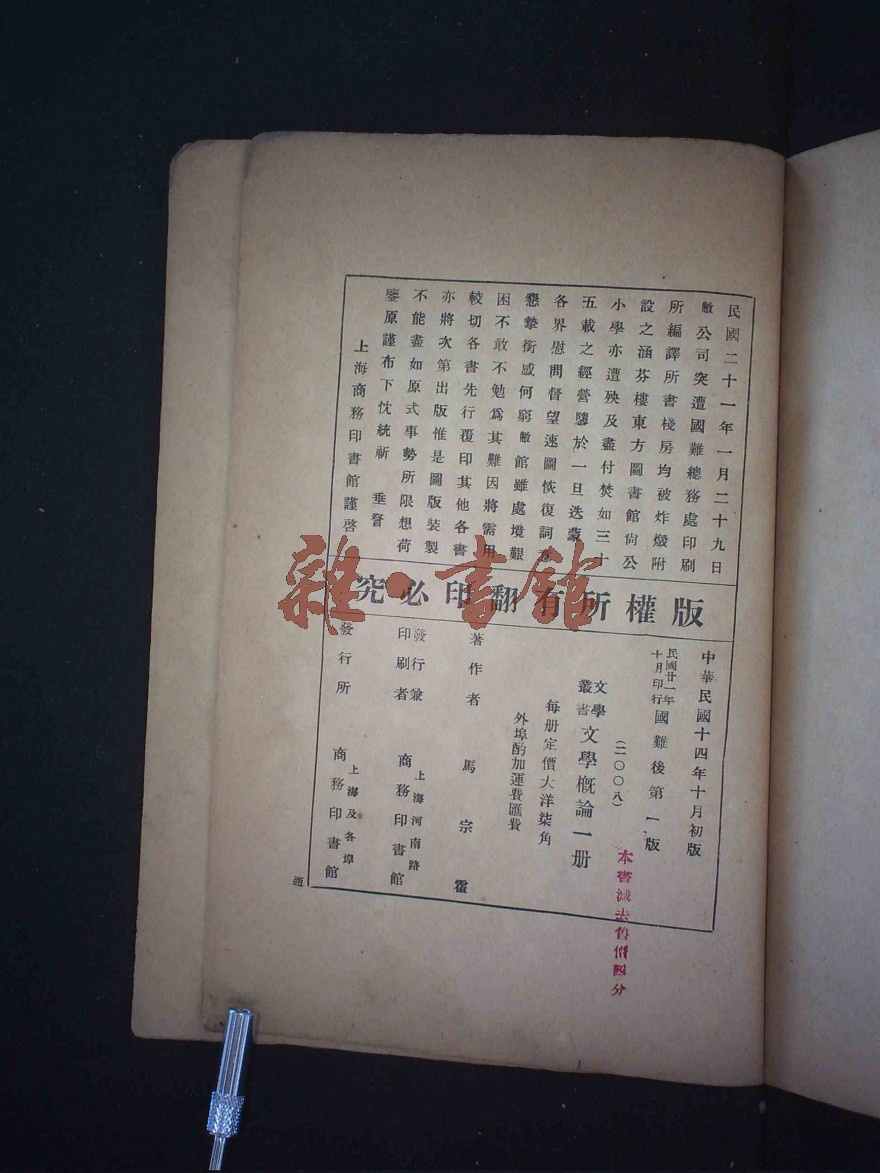 民國二十一年一月二十九日
敝公司突遭國難總務處印刷
所編譯所書棧房均被炸燬附
設之涵芬樓東方圖書館尙公
小學亦遭殃及盡付焚如三十
五載之經營隳於一旦迭蒙
各界慰問督望速圖恢復詞意
懇摯銜感何窮敝館雖處境艱
困不敢不勉爲其難因將需用
較切各書先行覆印其他各書
亦將次第出版惟是圖版裝製
不能盡如原式事勢所限想荷
鑒原謹布下忱統祈 垂詧
上海商務印書館謹啓
版權所有翻印必究
中華民國十四年十月初版
民國廿一年十月印行國難後第一版
(二〇〇八)
文學叢書 文學概論一册
每册定價大洋柒角
外埠酌加運費匯費
著作者 馬宗霍
發行兼印刷者 上海河南路 商務印書館
發行所 上海及各埠 商務印書館
本書減去舊價四分
雜·書館